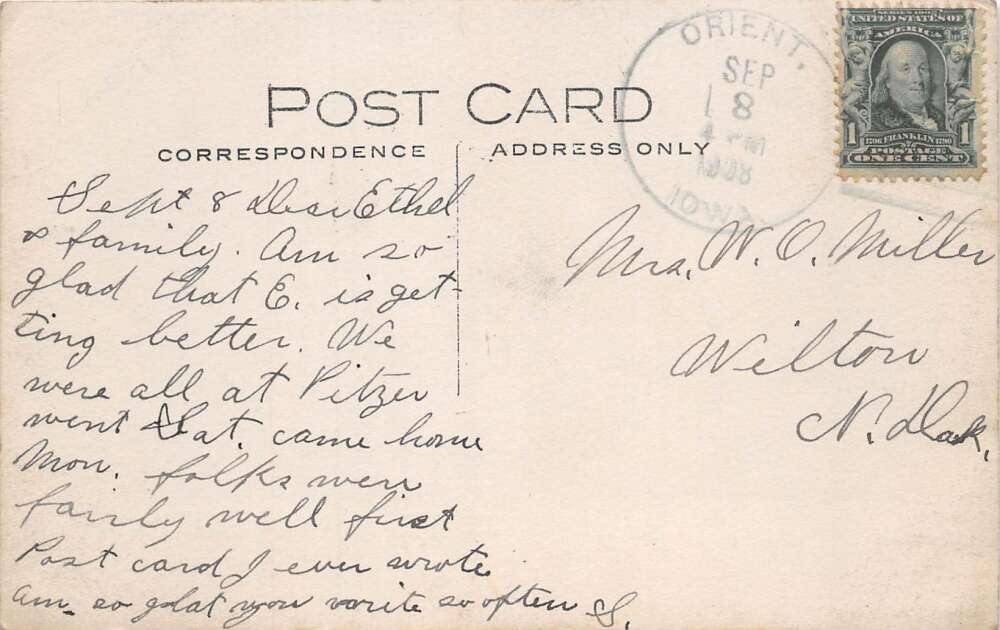 POST CARD
CORRESPONDENCE
ADDRESS ONLY
ORIENT,
SEP
8
4 PM
1908
IOWA
SERIES 1902
UNITED STATES OF
AMERICA
1
1706 FRANKLIN 1790
1
POSTAGE
ONE CENT
Sept 8 Dear Ethel
& family. Am so
glad that E. is get-
ting better. We
were all at Pitzer
went Sat. came home
Mon. folks were
fairly well first
Post card I ever wrote
am so glat you write so often S.
Mrs. W. O. Miller
Wilton
N. Dak.